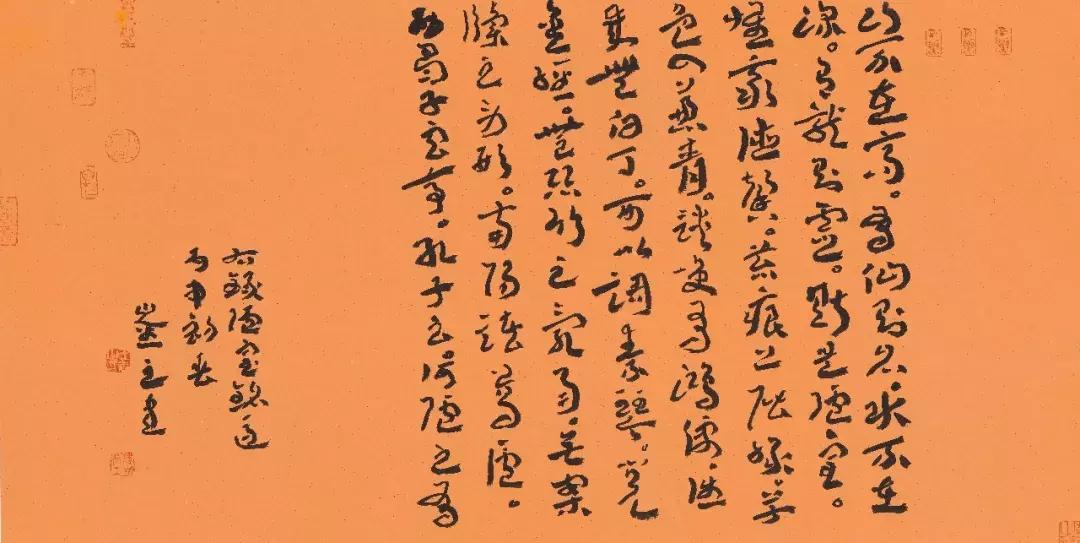 山不在高。有仙則名水不在
深。有龍則靈。斯是陋室。
惟吾德馨。苔痕上階綠。草
色入簾青。談笑有鴻儒往
來無白丁。可以調素琴。
金經。無絲竹之亂耳。无案
牘之勞形。南陽諸葛廬。
西蜀子雲亭。孔子云何陋之有
右錄陋室銘
丙申初春
之書